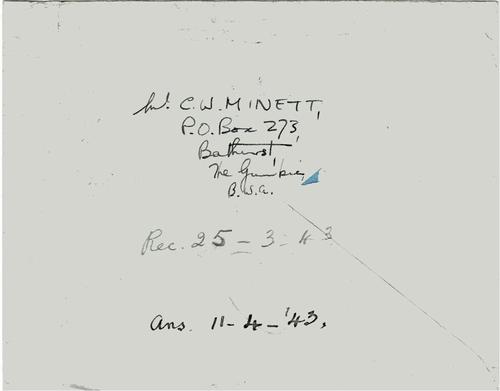 Mr. C.W. MINETT,
P.O. Box 273,
Bathurst,
The Gambia,
B.W.A.
Rec. 25 - 3 - 43
Ans. 11 - 4 - '43,